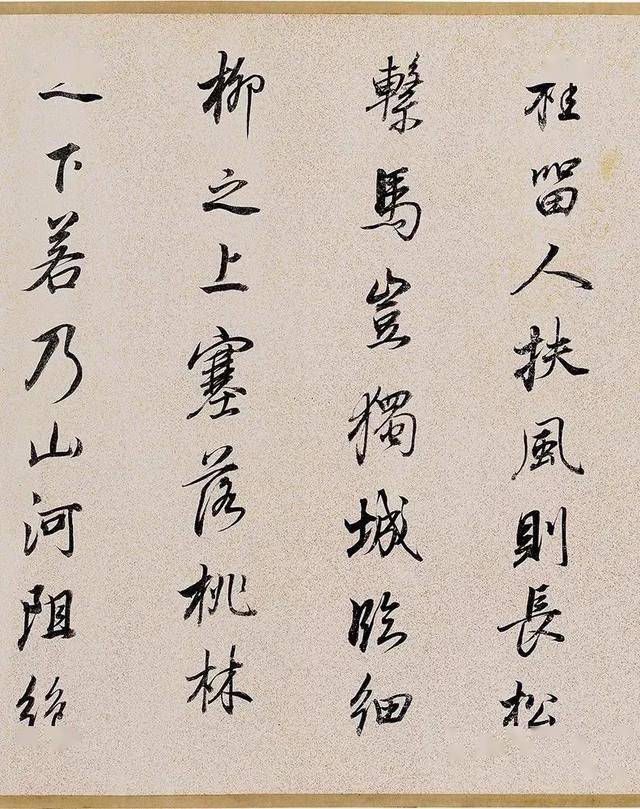 桂留人扶風則長松
繫馬豈獨城臨細
柳之上塞落桃林
之下若乃山河阻絕